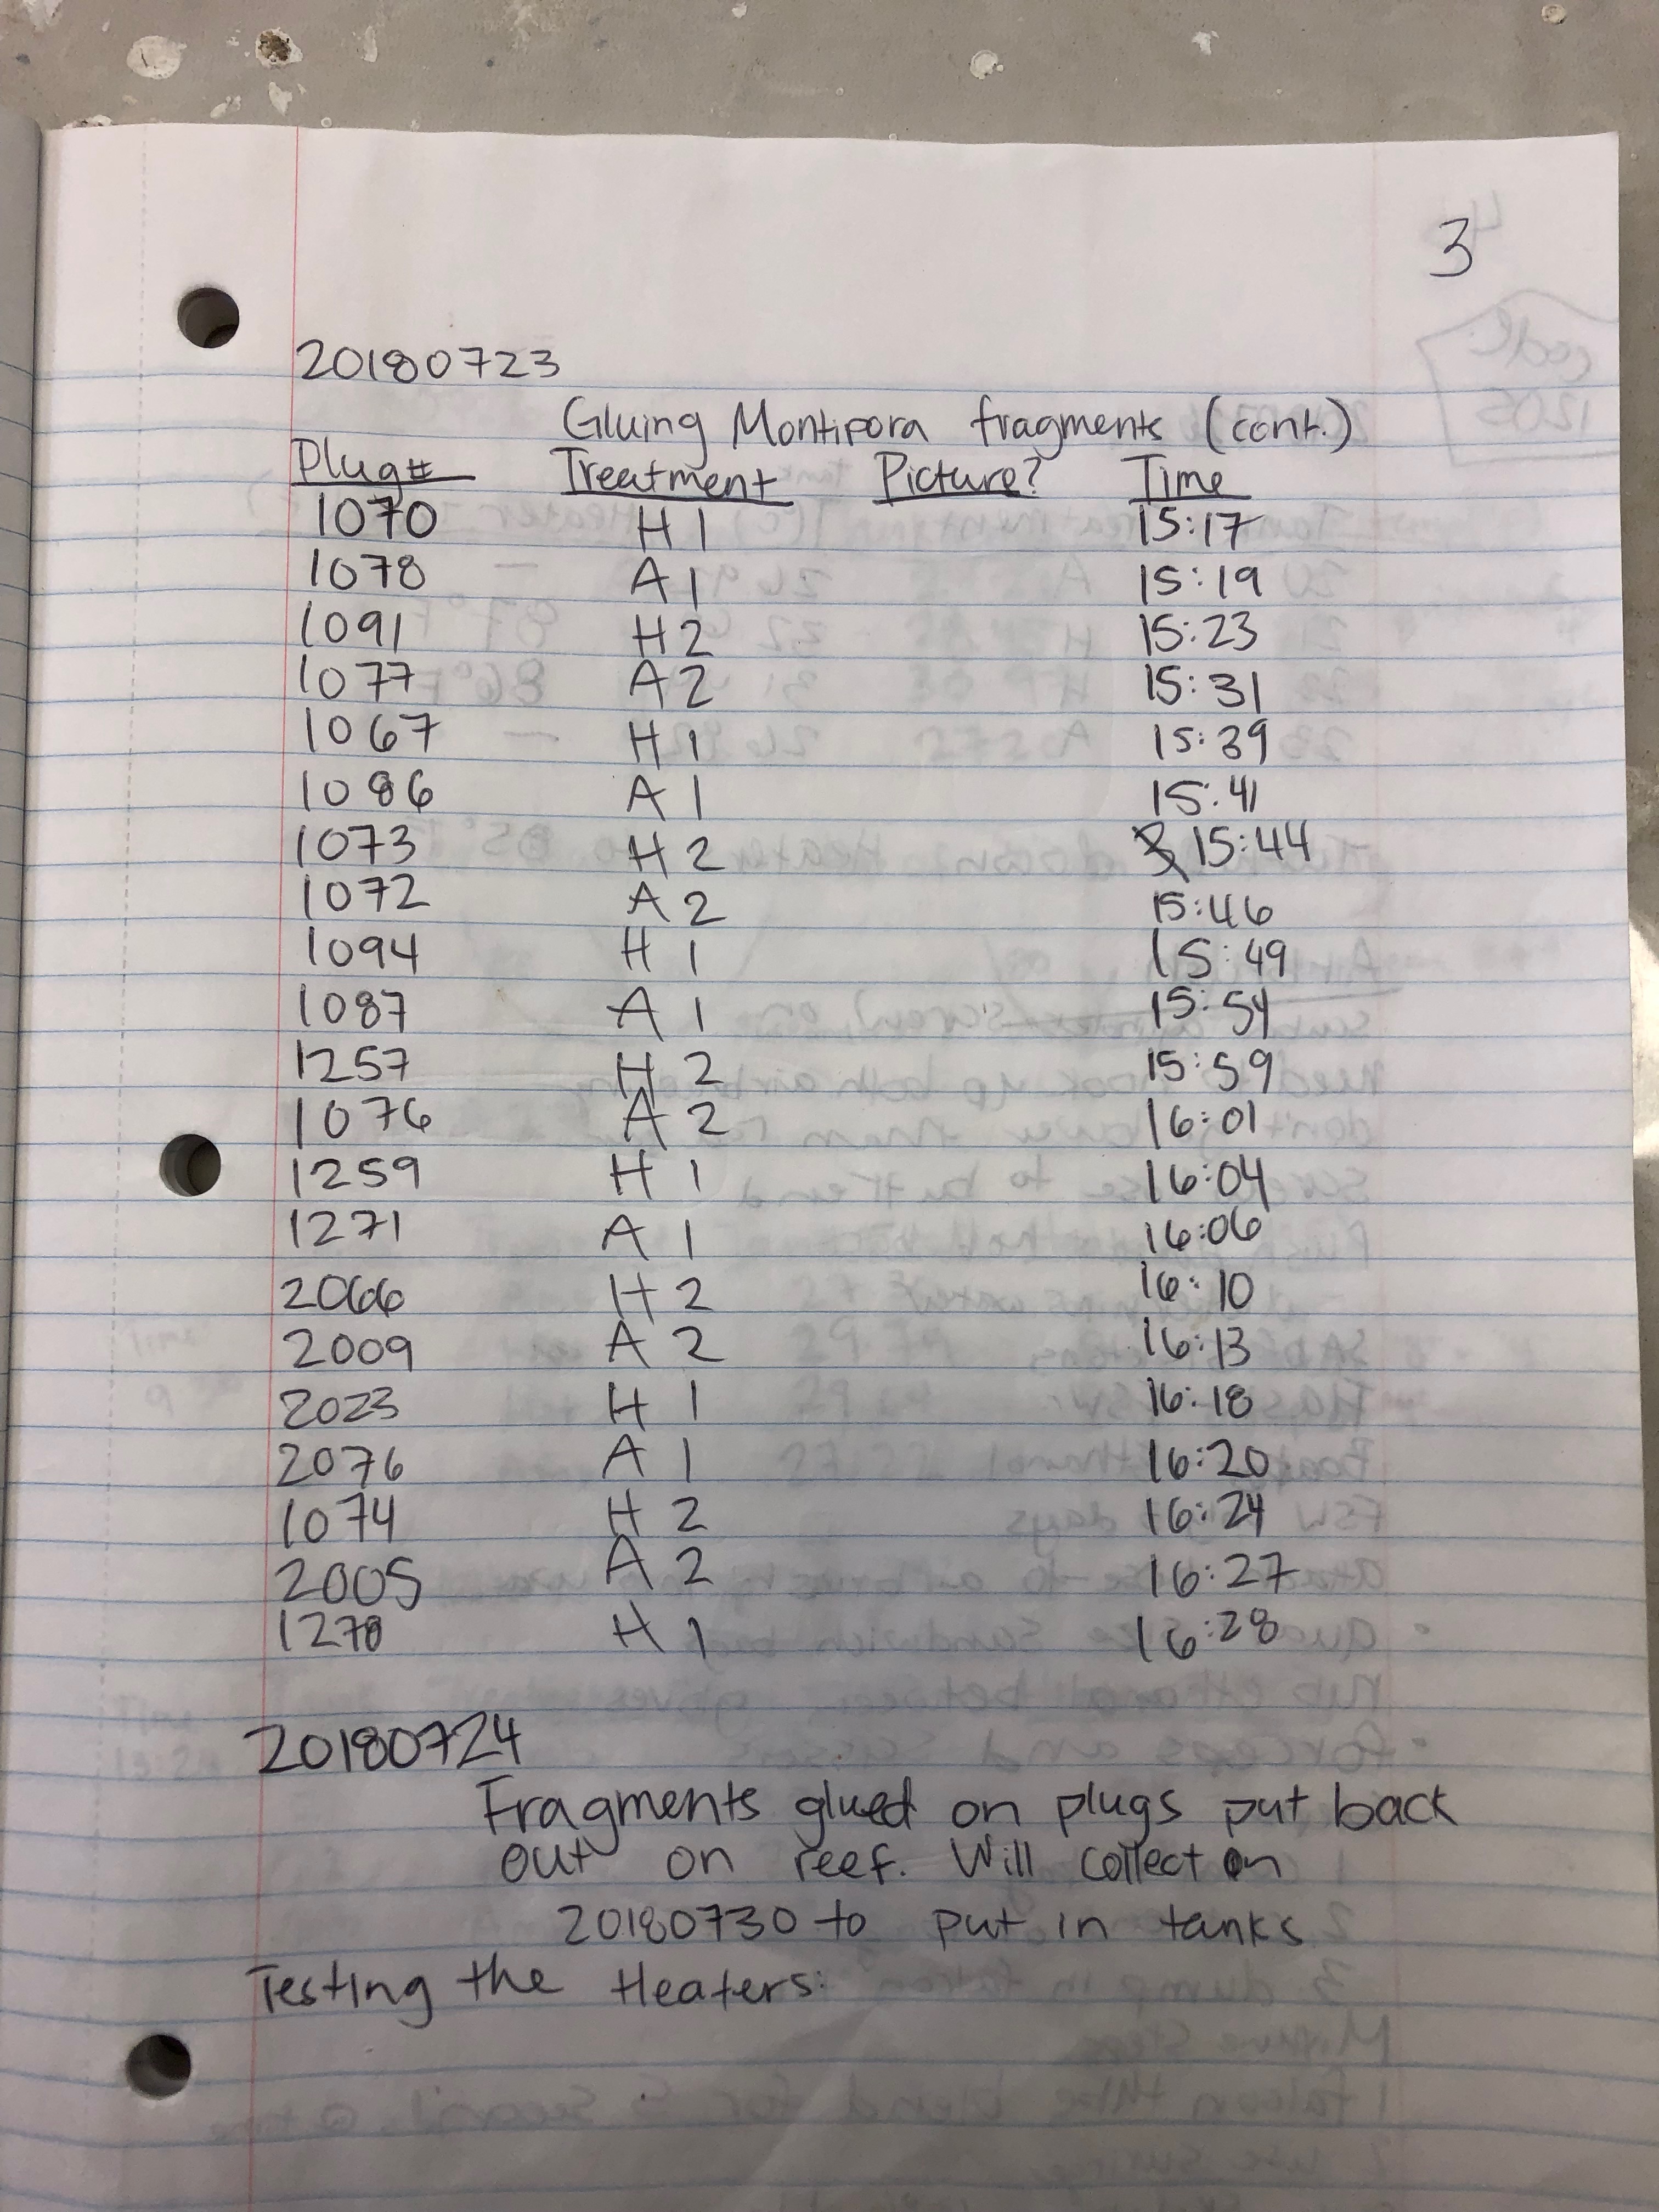 3
20180723
Gluing Montipora fragments (cont.)
Plug# Treatment Picture? Time
1070 H 1 15:17
1078 A 1 15:19
1091 H 2 15:23
1077 A 2 15:31
1067 H 1 15:39
1086 A 1 15:41
1073 H 2 15:44
1072 A 2 15:46
1094 H 1 15:49
1087 A 1 15:54
1257 H 2 15:59
1076 A 2 16:01
1259 H 1 16:04
1271 A 1 16:06
2066 H 2 16:10
2009 A 2 16:13
2023 H 1 16:18
2076 A 1 16:20
1074 H 2 16:24
2005 A 2 16:27
1270 H 1 16:28
20180724
Fragments glued on plugs put back
out on reef. Will collect on
20180730 to put in tanks
Testing the Heaters: